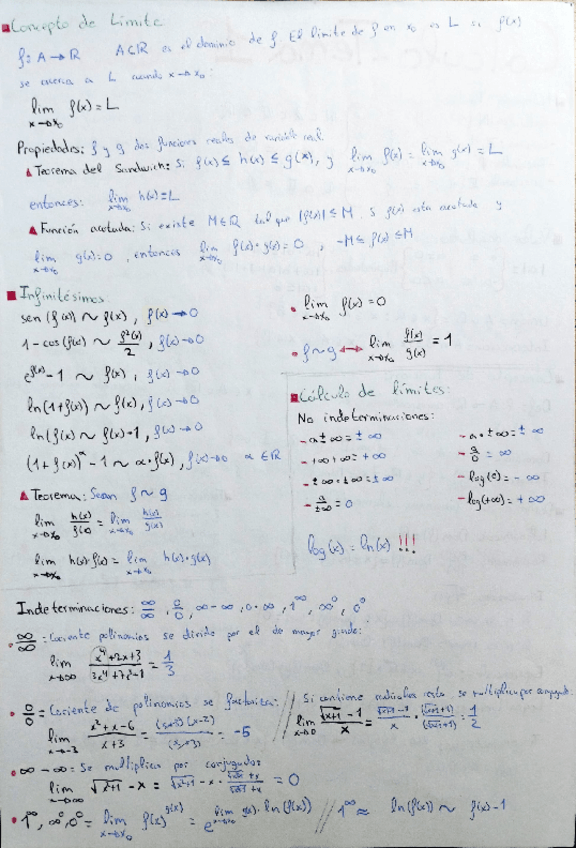 Concepto de Límite
f: A → R A⊂R es el dominio de f. El límite de f en x₀ es L si f(x)
se acerca a L cuando x→x₀:
lim x→x₀ f(x) = L
Propiedades: f y g dos funciones reales de variable real
▲ Teorema del Sandwich: Si f(x) ≤ h(x) ≤ g(x), y lim x→x₀ f(x) = lim x→x₀ g(x) = L
entonces: lim x→x₀ h(x) = L
▲ Función acotada: Si existe M∈R tal que |f(x)| ≤ M. Si f(x) está acotada y
lim x→x₀ g(x) = 0, entonces lim x→x₀ f(x)·g(x) = 0 , -M ≤ f(x) ≤ M
Infinitésimos
sen(f(x)) ∼ f(x), f(x)→0
1 - cos(f(x)) ∼ f²(x)/2, f(x)→0
e^f(x) - 1 ∼ f(x), f(x)→0
ln(1+f(x)) ∼ f(x), f(x)→0
ln(f(x)) ∼ f(x)-1, f(x)→0
(1+f(x))^α - 1 ∼ α·f(x), f(x)→0 α∈R
• lim x→x₀ f(x) = 0
• f∼g ↔ lim x→x₀ f(x)/g(x) = 1
▲ Teorema: Sean f∼g
lim x→x₀ h(x)/f(x) = lim x→x₀ h(x)/g(x)
lim x→x₀ h(x)·f(x) = lim x→x₀ h(x)·g(x)
Cálculo de límites:
No indeterminaciones:
- a ± ∞ = ± ∞
- +∞ + ∞ = +∞
- ±∞ · ±∞ = ±∞
- a/±∞ = 0
- a · ±∞ = ± ∞
- a/0 = ∞
- log(0) = -∞
- log(+∞) = +∞
log(x) = ln(x) !!!
Indeterminaciones: ∞/∞, 0/0, ∞-∞, 0·∞, 1^∞, ∞⁰, 0⁰
• ∞/∞ = Cociente polinomios se divide por el de mayor grado:
lim x→∞ (x⁴+2x+3)/(3x⁴+7x²-1) = 1/3
• 0/0 = Cociente de polinomios se factoriza:
lim x→-3 (x²+x-6)/(x+3) = (x+3)(x-2)/(x+3) = -5
// Si contiene radicales resta, se multiplica por conjugado:
lim x→0 (√(x+1) - 1)/x = (√(x+1) - 1)/x · (√(x+1)+1)/(√(x+1)+1) = 1/2
• ∞-∞ = Se multiplica por conjugados
lim x→∞ √(x²+1) - x = √(x²+1) - x · (√(x²+1) + x)/(√(x²+1) + x) = 0
• 1^∞, ∞⁰, 0⁰ = lim x→x₀ f(x)^g(x) = e^(lim x→x₀ g(x)·ln(f(x))) // 1^∞ ≈ ln(f(x)) ∼ f(x)-1